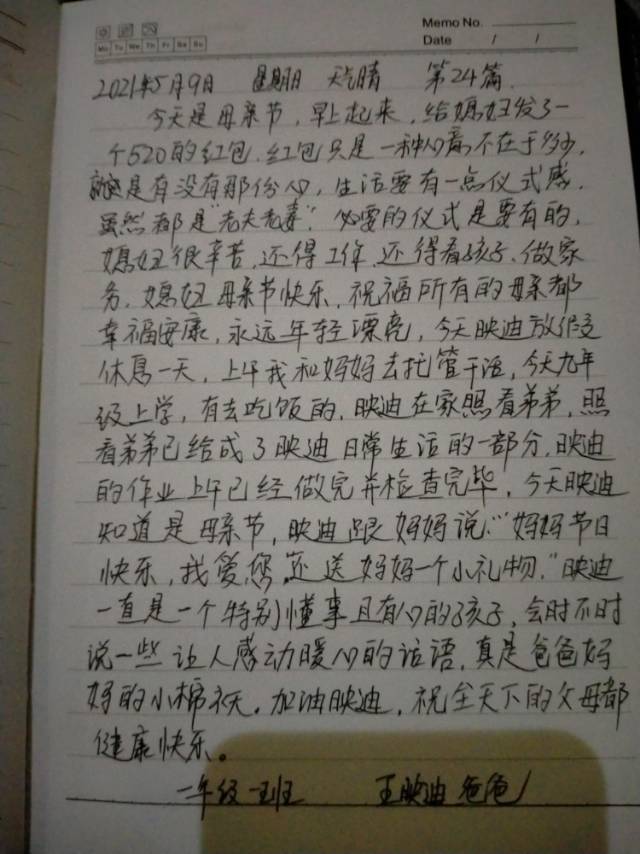 Memo No.
Mo Tu We Th Fr Sa Su
Date / /
2021年5月9日 星期日 天气晴 第24篇
今天是母亲节，早上起来，给媳妇发了一
个520的红包，红包只是一种心意不在于多少，
就是有没有那份心，生活要有一点仪式感，
虽然都是“老夫老妻”，必要的仪式是要有的，
媳妇很辛苦，还得工作，还得看孩子、做家
务，媳妇母亲节快乐，祝福所有的母亲都
幸福安康，永远年轻漂亮，今天映迪放假
休息一天，上午我和妈妈去托管干活，今天九年
级上学，有去吃饭的，映迪在家照看弟弟，照
看弟弟已给成了映迪日常生活的一部分，映迪
的作业上午已经做完并检查完毕，今天映迪
知道是母亲节，映迪跟妈妈说：“妈妈节日
快乐，我爱您，还送妈妈一个小礼物，”映迪
一直是一个特别懂事且有心的孩子，会时不时
说一些让人感动暖心的话语，真是爸爸妈
妈的小棉袄，加油映迪，祝全天下的父母都
健康快乐。
一年级一班 王映迪爸爸